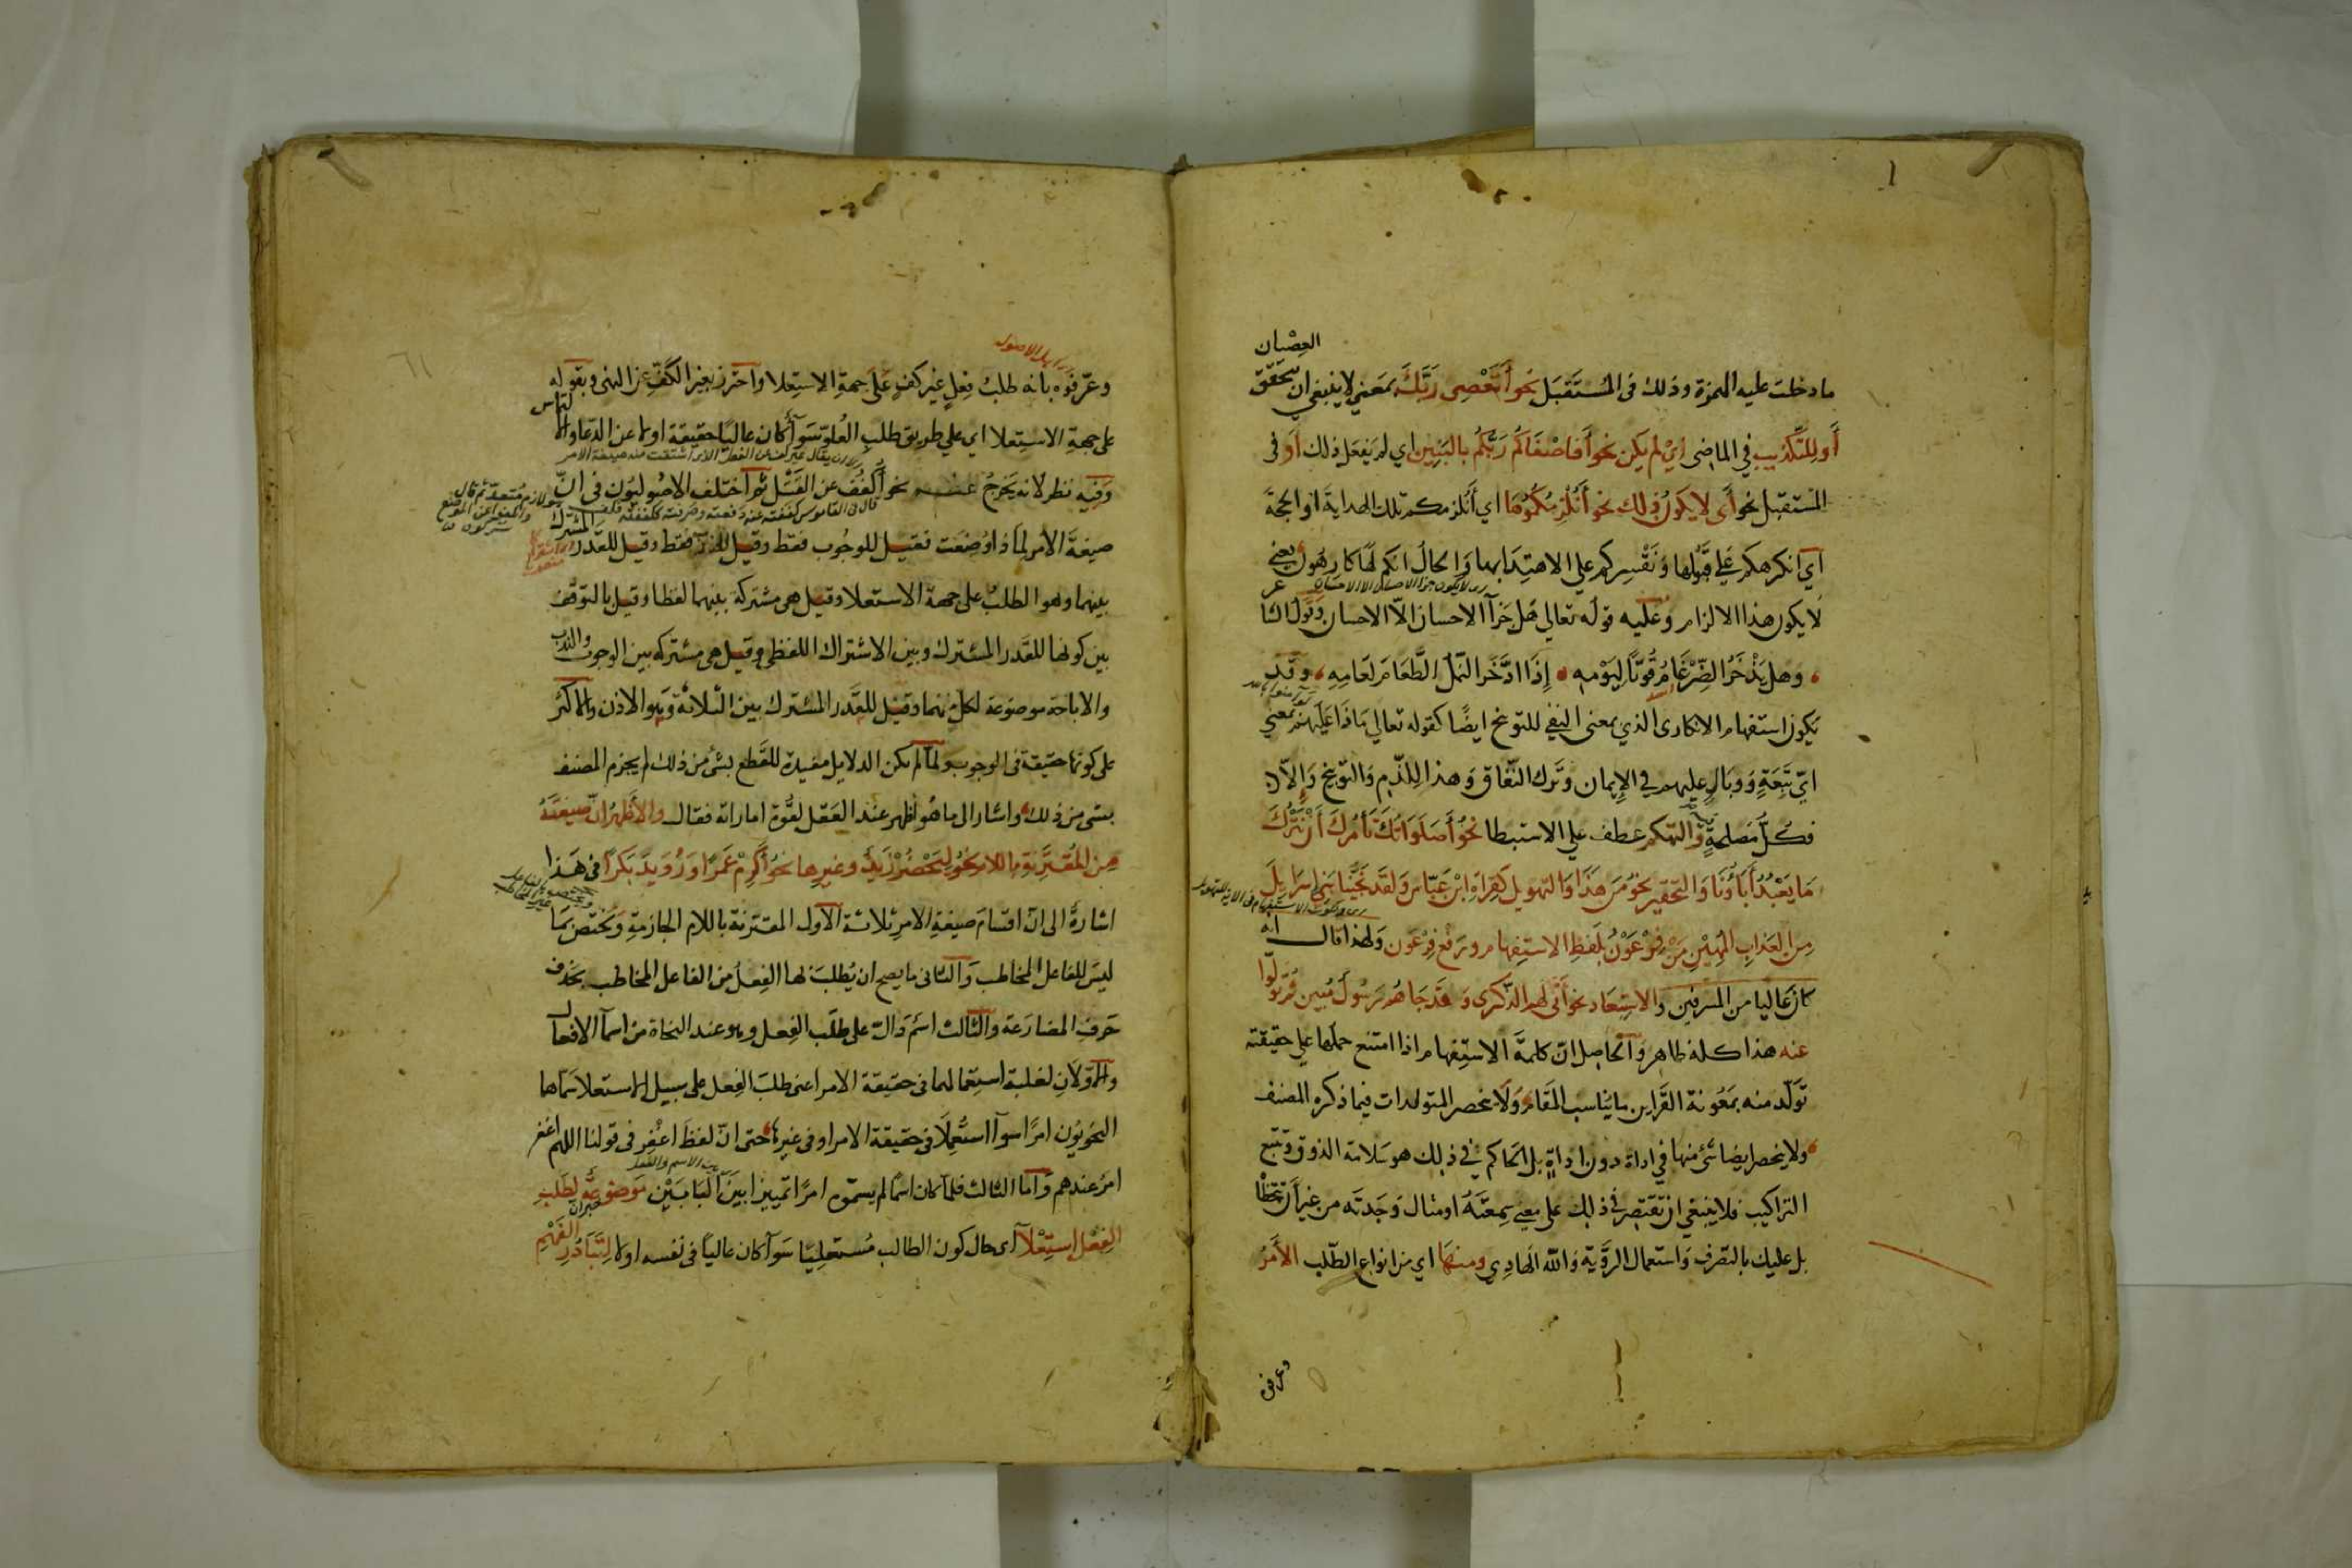 العصيان
ما دخلت عليه الهمزة وذلك فى المُستَقبَل نحو أَتَعْصِى رَبَّكَ بمَعنى لا ينبغى ان يتحقق
أَو لِلتَّكذيبِ في الماضى اىْ لم يكن نحو أَفَاصْفَاكُم رَبُّكُم بالبَنِين اي لم يَفعَل ذلك أَو فى
المُستقبل نحو أى لا يكونُ ذلك نحو أَنُلْزِمُكُمُوهَا اي أَنُلزمكم تلك الهداية او الحجة
اي انكرهكم على قبُولها ونَقْسِركم على الاهتِدَا بها والحالُ انكم لها كارهُون يعنى
لا يكون هذا الالزام وعليه قوله تعالي هَل جَزَآ الاحسان الّا الاحسان وقول
وهل يَذْخَرُ الضِّرْغَامُ قُوتًا لِيَوْمِهِ إِذَا ادَّخَرَ النَّملُ الطَّعَامَ لِعَامِهِ وقد
يكون استفهام الانكارى الذي بمعنى النفى للتوبيخ ايضًا كقوله تعالي مَاذَا عَلَيهِم بمعنى
اىّ تَبِعَةٍ وَوبَالٍ عليهم في الإيمان وتَرك النّفاق وَهذا للذّم والتوبيخ وَإلّا
فكُلُّ مَصلحةٍ والتهكم عطف علي الاستبطا نحوُ أَصَلَوَاتُكَ تَأمُرُكَ أنْ نَتْرُكَ
مَا يَعْبُدُ أَبَاؤُنَا والتحقير نحوُ مَن هَذَا والتهويل كقِرَاءَةِ ابْن عَبّاس وَلَقَد نَجَّيْنَا بَنِى اسرايِلَ
مِنَ العَذابِ المُهِيْنِ مَنْ فِرْعَوْنُ بلَفظِ الاستِفهام ورَفْعِ فِرْعَون ولهذا قال انه
كان عَاليا من المسرفين والاستِبعَاد نحو أَنّى لهم الذّكرى وَقَدجَاهُم رَسُولٌ مُبين ثُمّ تَولّوا
عنه هذا كله ظاهر والحاصِل انّ كلمة الاستِفهام اذا امتنع حملها علي حقيقته
تولّد منه بمَعُونة القَراين ما يُناسب المقَام ولا ينحصر المتولدات فيما ذكره المصنف
ولا ينحصر ايضا شئ منها في اداة دون اداةٍ بل الحَاكم في ذلك هو سَلامة الذوق وتتبع
التراكيب فلا ينبغي ان تَقتَصِر في ذلك على معنى سمعتَهُ او مثال وَجَدتَه من غير أن تتخطّا
بل عليك بالتصرف واستعمال الرَّوِيّة وَاللّه الهادِي ومنهَا اي من انواع الطّلب الأَمْرُ
وعرفوه
وعرّفوه بانه طلبُ فِعلٍ غير كفٍ عَلَى جهةِ الاستِعلا واحترز بغير الكَفّ عن النهى وبقوله
على جهةِ الاستِعلا اي علي طريق طلب العُلوّ سَوَآ كان عاليًا حقيقة او لا عن الدّعا والالتماس
وفيه نظر لانه يَخرجُ عنه نحو أُكفُف عن القَتْل ثم اختلف الاصُوليّون فى انّ
صيغةَ الامر لماذا وُضِعَت فقيل للوجُوب فقط وقيل للندب فقط وقيل للقدر المشترك
بينهما وهو الطلب على جهة الاستعلا وقيل هى مشتركة بينهما لفظا وقيل بالتوقّف
بين كونها للقَدر المشترك وبين الاشتراك اللفظى وقيل هى مشتركه بين الوجوب والندب
والاباحة موضوعة لكلٍ منهما وقيل للقَدر المشترك بين الثلاثة وَهو الاذن والاكثر
على كونها حقيقة فى الوجوب ولما لم يكن الدلايل مفيدة للقَطع بشئ من ذلك لم يجزم المصنف
بشى من ذلك واشار الى ما هُو اظهر عند العَقل لقُوّة اماراته فقال والأَظهرُ انّ صيغَتَهُ
مِن المُقْتَرِنَةِ باللام نحوُ لِيَحْضُرْ زَيدٌ وغيرِها نحوُ أَكْرِمْ عَمرًا وَرُوَيدَ بَكرًا فى هَذا
اشارةٌ الى انّ اقسَام صيغةِ الامرِ ثلاثة الاول المقترنة باللام الجازمةِ وتختصّ بمَا
ليسَ للفاعل المخاطب وَالثانى ما يصح ان يُطلبَ بها الفِعلُ من الفاعل المخاطب بحَذف
حَرفِ المضارَعة والثالث اسْم دَالّ على طلَبِ الفِعل وهو عند النحَاة من اسمآ الافعال
والاوّلانِ لغلبة استِعمالهما فى حقيقة الامر اعنى طلبَ الفِعل على سبيل الاستعلا سَمّاهما
النحويّون امرًا سوآ استُعْمِلَا فى حقيقة الامر او فى غيرها حتى انّ لفظَ اغْفِر فى قولنا اللهم اغفر
امرٌ عندهم وَاما الثالث فلمّا كان اسمًا لم يسمّوه امرًا تمييزا بينَ البَابَيْن مَوضُوعَةٌ لِطَلَبِ
الفِعْل استِعْلَآ اى حال كون الطالب مُستعلِيًا سَوآ كان عاليًا فى نفسه او لا لِتَبَادُرِ الفَهْمِ